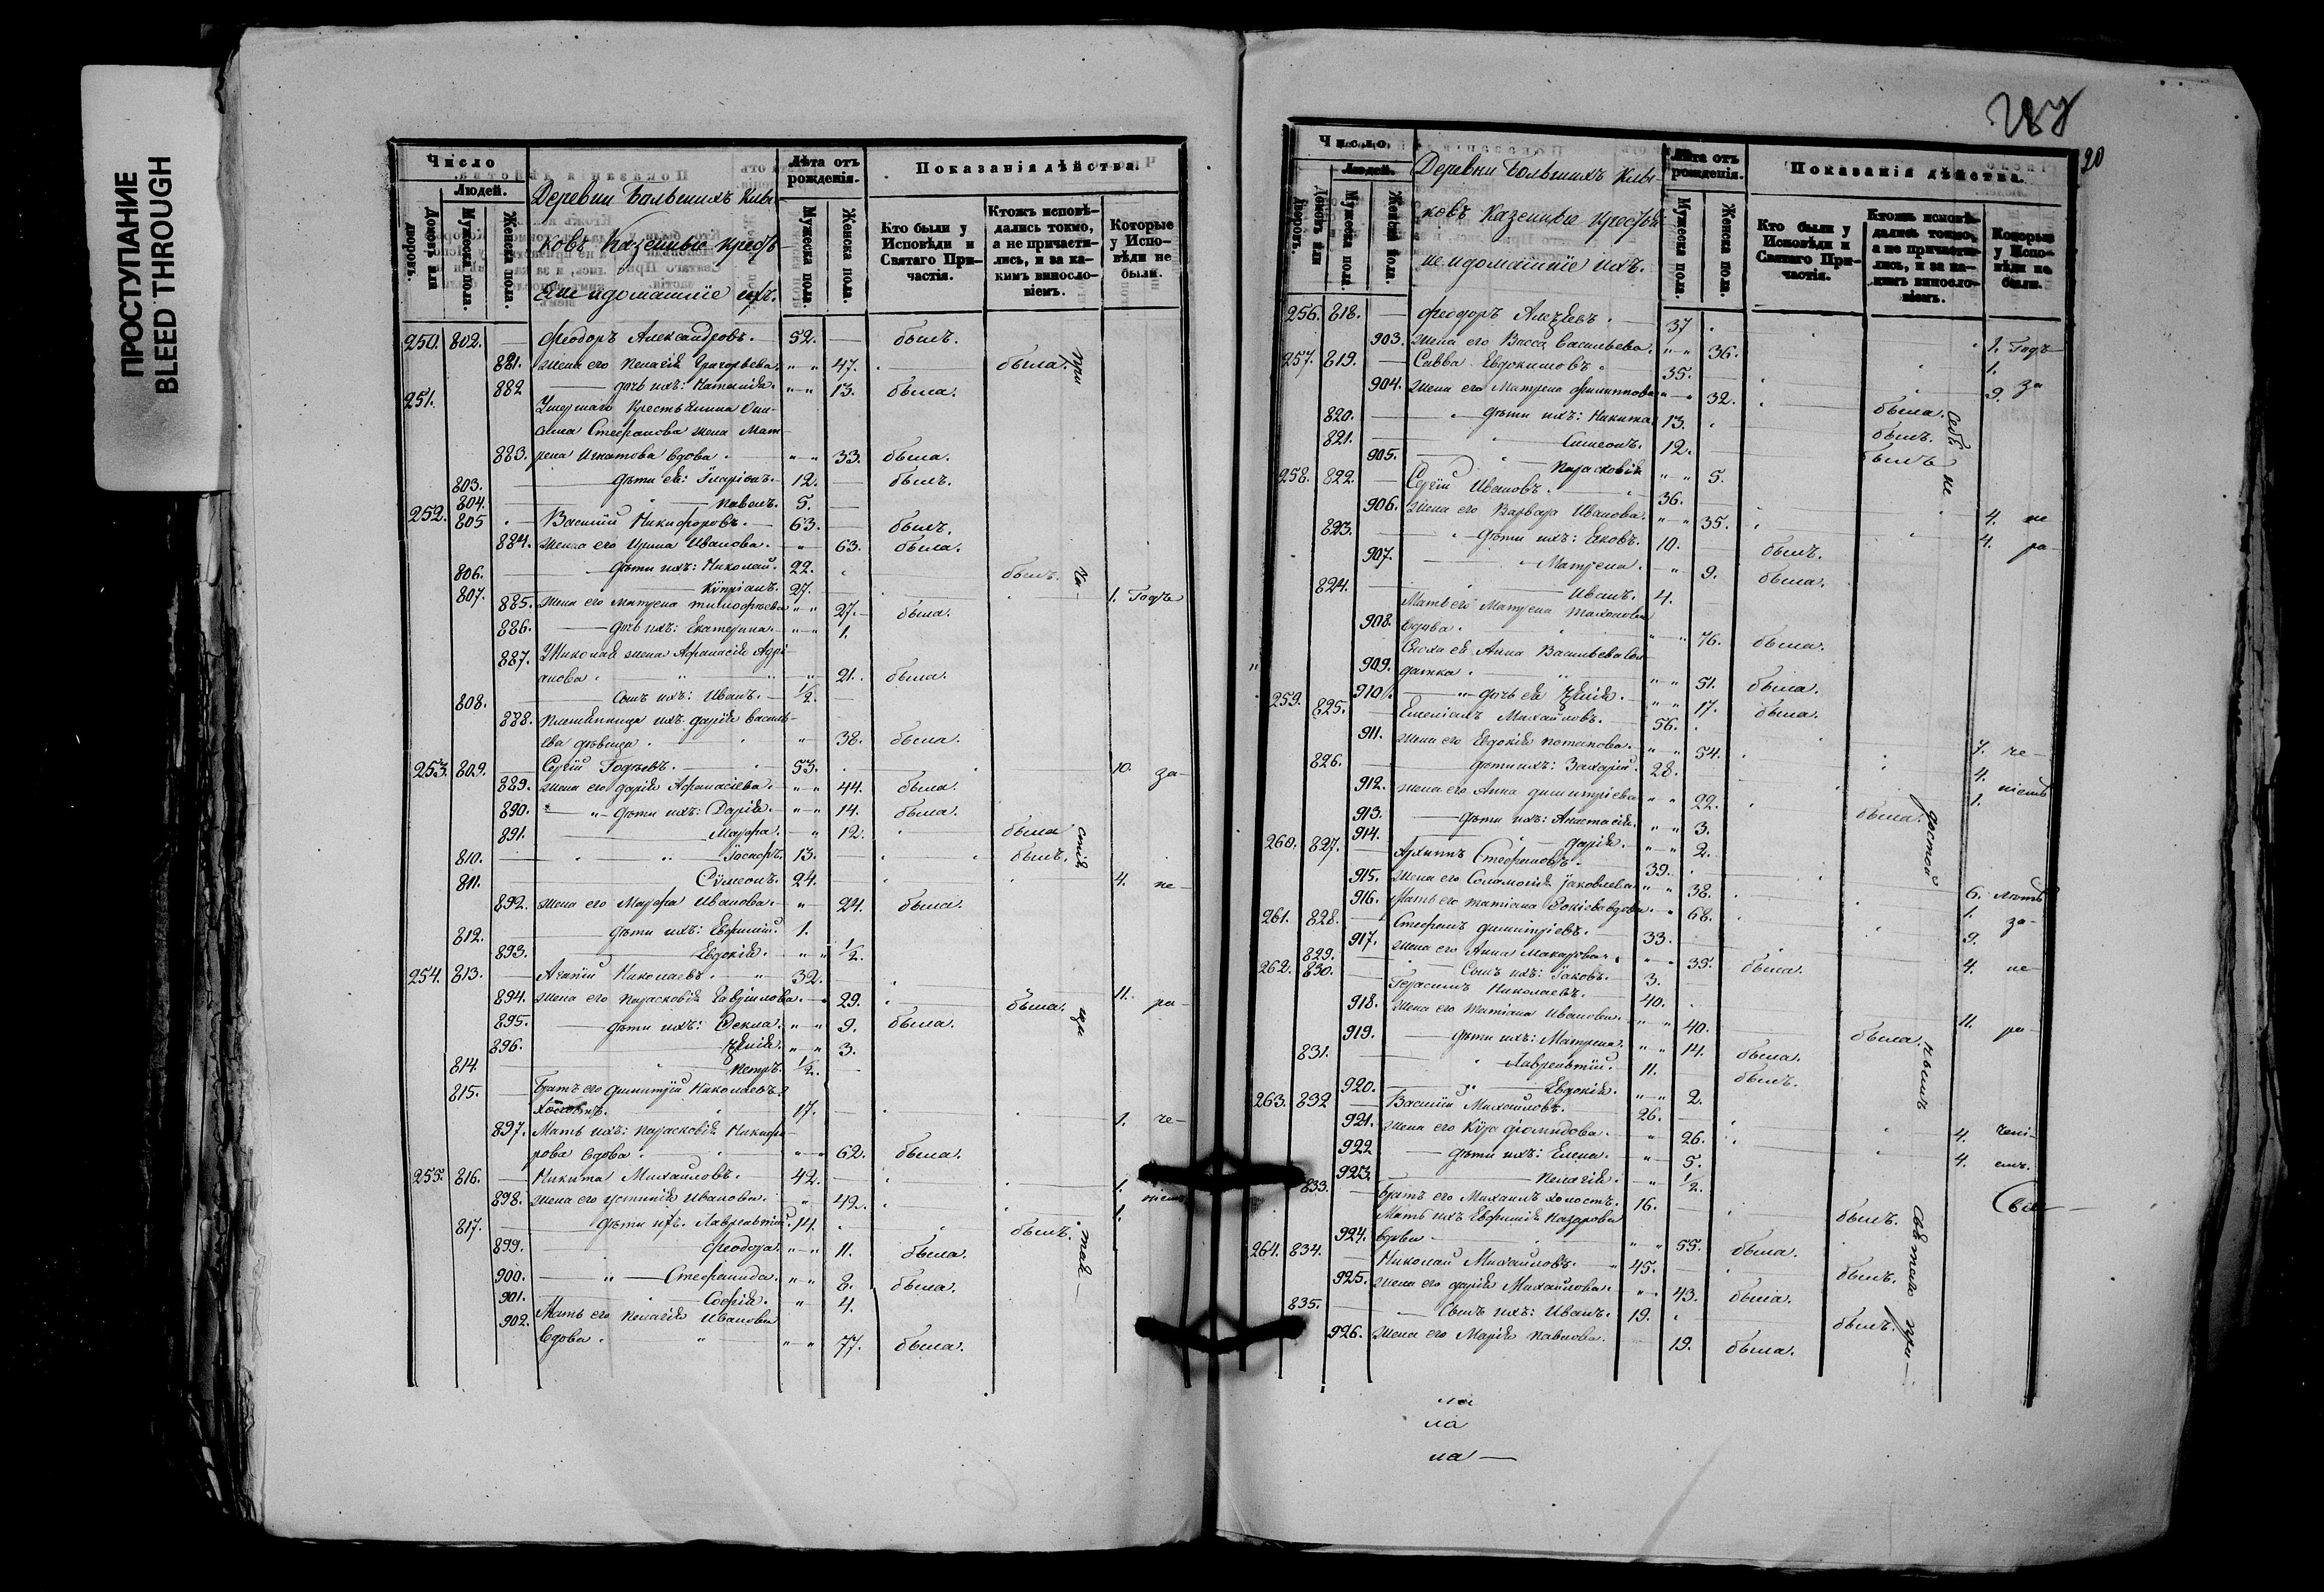 ПРОСТУПАНИЕ
BLEED THROUGH
Число
Людей.
Домовъ или дворовъ.
Мужеска пола.
Женска пола.
Деревни Большихъ Клы-
ковъ Казенные крестья-
не и домашніе ихъ.
Лѣта отъ рожденія.
Мужеска пола.
Женска пола.
Показанія дѣйства.
Кто были у Исповѣди и Святаго Причастія.
Ктожъ исповѣдались токмо, а не причастились, и за какимъ винословіемъ.
Которые у Исповѣди не были.
250. 802. Ѳеодоръ Александровъ. 52. былъ.
881. жена его Пелагія Григорьева. 47. была. при
882 дочь ихъ: Наталія. 13. была.
251. Умершаго Крестьянина
Стефанова жена Мат-
883. рена Игнатова вдова. 33. была.
803. дѣти ея: Іларіонъ. 12. былъ.
804. Павелъ. 5.
252. 805 Василій Никифоровъ. 63. былъ.
884. жена его Ирина Иванова. 63. была.
806. дѣти ихъ: Николай. 22. былъ.
807. Кипріанъ. 27. 1. Годъ
885. жена его Матрена Тимофѣева 27. была.
886. дочь ихъ: Екатерина. 1.
887. У Николая жена Афанасія Адрі-
анова. 21. была.
808. Сынъ ихъ: Иванъ. 1/2.
888. Племянница ихъ Дарія Василь-
ева дѣвица. 38. была.
253. 809. Сергій Гордѣевъ. 53. 10. за-
889. жена его Дарія Афанасіева. 44. была.
890. дѣти ихъ: Дарія. 14. была.
891. Марфа. 12. была
810. Іосифъ. 13. былъ.
811. Сѵмеонъ. 24. 4. не-
892. жена его Марфа Иванова. 24. была.
812. дѣти ихъ: Евфимій. 1.
893. Евдокія. 1/2.
254. 813. Агапій Николаевъ. 32.
894. жена его Параскевія Гавріилова. 29. была. 11. ра-
895. дѣти ихъ: Ѳекла. 9. была.
896. Юлія. 3.
814. Петръ. 1/2.
815. Братъ его Димитрій Николаевъ
холостъ. 17. 1. че-
897. Мать ихъ: Параскевія Никифо-
рова вдова. 62. была.
255. 816. Никита Михайловъ. 42. 1.
898. жена его Устинія Иванова. 42. 1. ніемъ
817. дѣти ихъ. Лаврентій. 14. былъ.
899. Ѳеодора. 11. была.
900. Стефанида. 8. была.
901. Софія. 4.
902. Мать его Пелагія Иванова
вдова. 77. была.
20
Число
Людей.
Домовъ или дворовъ.
Мужеска пола.
Женска пола.
Деревни Большихъ Клы-
ковъ Казенные крестья-
не и домашніе ихъ.
Лѣта отъ рожденія.
Мужеска пола.
Женска пола.
Показанія дѣйства.
Кто были у Исповѣди и Святаго Причастія.
Ктожъ исповѣдались токмо, а не причастились, и за какимъ винословіемъ.
Которые у Исповѣди не были.
256. 818. Ѳеодоръ Алеѯѣевъ. 37
903. жена его Васса Васильева. 36. 1. Годъ
257. 819. Савва Евдокимовъ. 35. 1.
904. жена его Матрена Филиппова 32. 9. за
820. дѣти ихъ: Никита 13. была.
821. Симеонъ. 12. былъ.
905. Параскевія 5. былъ
258. 822. Сергій Ивановъ. 36.
906. жена его Варвара Иванова. 35. 4. не
823. дѣти ихъ: Яковъ. 10. былъ. 4. ра-
907. Матрена. 9. была.
824. Иванъ. 4.
Мать его Матрена
908. вдова. 76. была.
Сноха ея Анна Васильева сол-
909. датка. 51. была.
910. дочь ея Юлія. 17. была.
259. 825. Емеліанъ Михайловъ. 56.
911. жена его Евдокія Потапова. 54. 7. че-
826. дѣти ихъ: Захарій. 28. 4.
912. жена его Анна Димитріева 22. была. 1. ніемъ
913. дѣти ихъ: Анастасія. 3.
914. Дарія. 2.
260. 827. Архиппъ Стефановъ. 39.
915. жена его Соломонія Іаковлева 38. 6. лѣтъ
916. Мать его Татіана вдова 68. 1. за-
261. 828. Стефанъ Димитріевъ. 33. 9.
917. жена его Анна Макарова. 35. была. 4. не
829. Сынъ ихъ: Іаковъ. 3.
262. 830. Герасимъ Николаевъ. 40.
918. жена его Татіана Иванова. 40. была. 11. ра-
919. дѣти ихъ: Матрена. 14. была.
831. Лаврентій. 11. былъ.
920. Евдокія. 2.
263. 832 Василій Михайловъ. 26.
921. жена его Кира Діомидова. 26. 4.
922 дѣти ихъ: Елена. 5. 4. емъ.
923. Пелагія. 1/2.
833. Братъ его Михаилъ холостъ. 16. былъ.
Мать ихъ Евфимія Назарова
924. вдова 55. была.
264. 834. Николай Михайловъ. 45. былъ.
925. жена его Дарія Михайлова. 43. была.
835. Сынъ ихъ: Иванъ. 19. былъ.
926. жена его Марія Павлова. 19. была.
ла
ла
ла